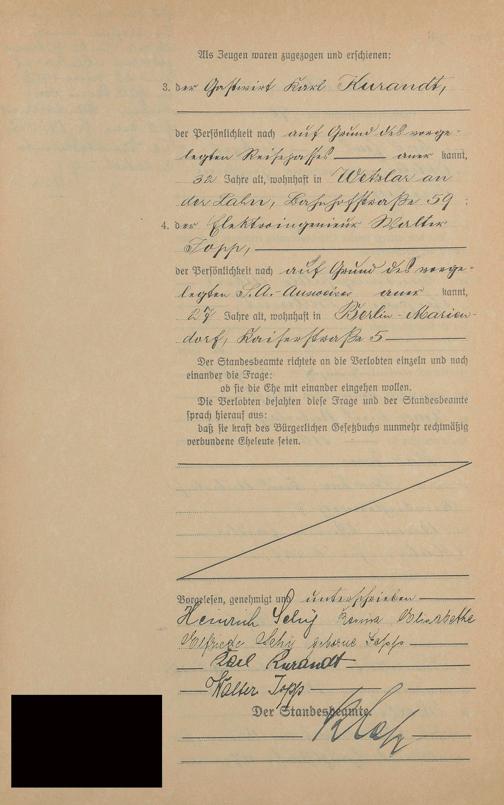 Als Zeugen waren zugezogen und erschienen:
3. der Gastwirt Karl Kurandt,
der Persönlichkeit nach auf Grund des vorge-
legten Reisepasses aner kannt,
32 Jahre alt, wohnhaft in Wetzlar an
der Lahn, Bahnhofstraße 59 ;
4. der Elektroingenieur Walter
Topp,
der Persönlichkeit nach auf Grund des vorge-
legten S.A.-Ausweises aner kannt,
27 Jahre alt, wohnhaft in Berlin-Marien-
dorf, Kaiserstraße 5
Der Standesbeamte richtete an die Verlobten einzeln und nach
einander die Frage:
ob sie die Ehe mit einander eingehen wollen.
Die Verlobten bejahten diese Frage und der Standesbeamte
sprach hierauf aus:
daß sie kraft des Bürgerlichen Gesetzbuchs nunmehr rechtmäßig
verbundene Eheleute seien.
Vorgelesen, genehmigt und unterschrieben
Heinrich Elisabethe
Elfriede geborne Topp
Karl Kurandt
Walter Topp
Der Standesbeamte.